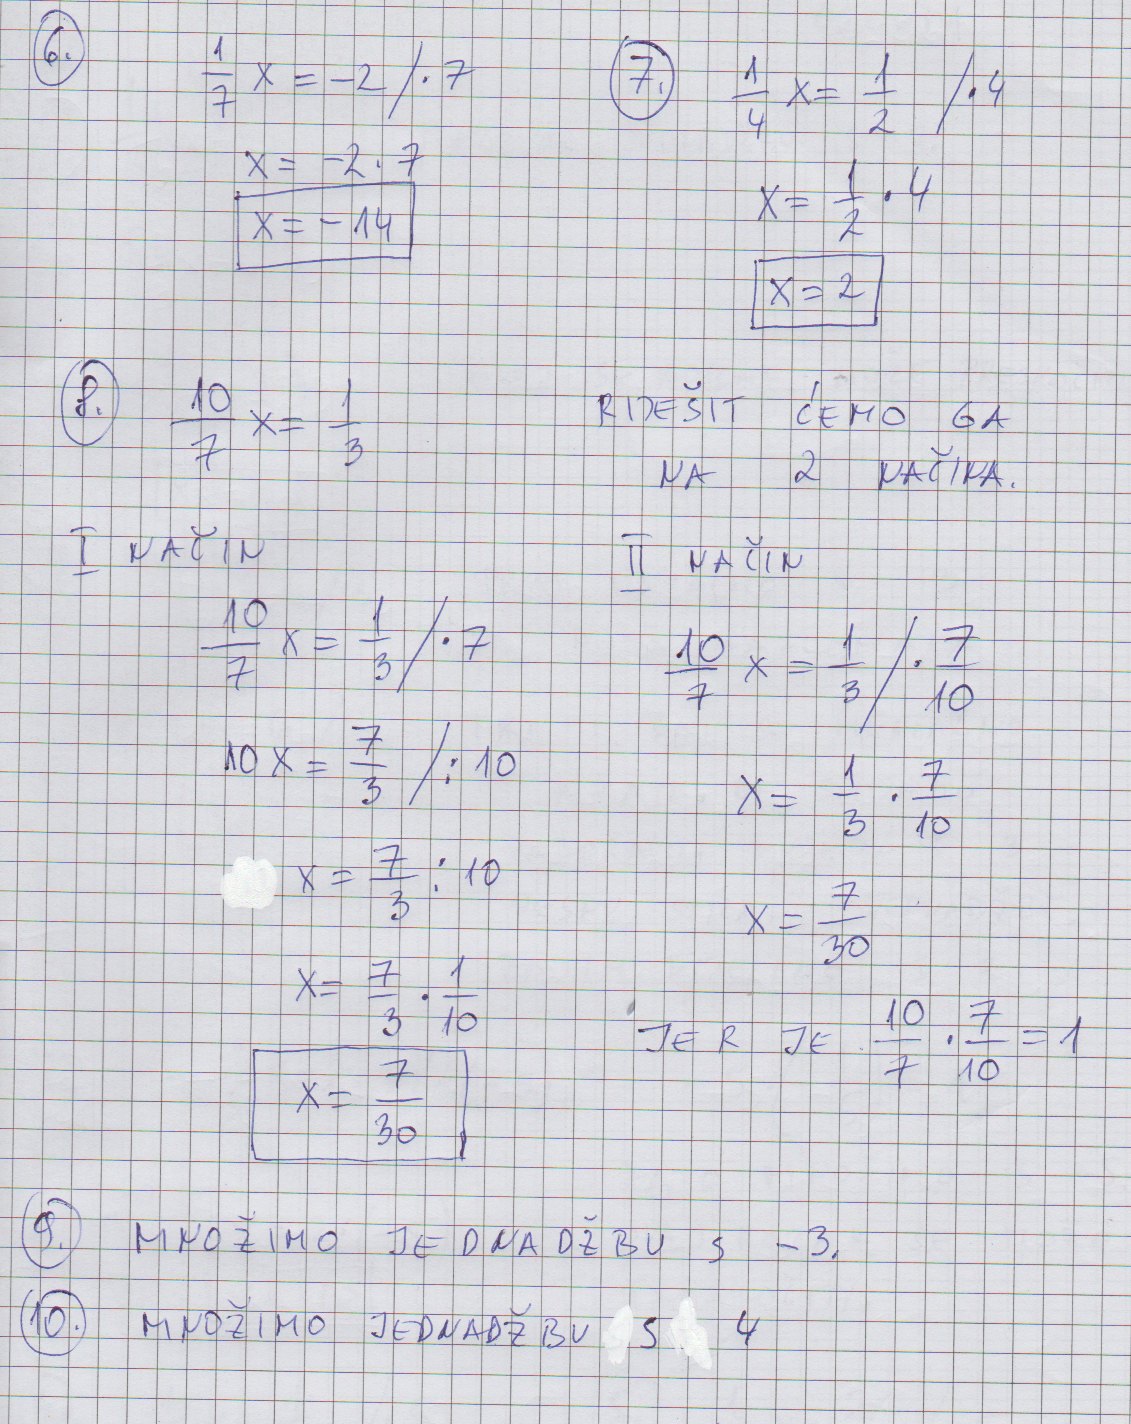 6.
1/7 x = -2 / · 7
x = -2 · 7
x = -14
7.
1/4 x = 1/2 / · 4
x = 1/2 · 4
x = 2
8.
10/7 x = 1/3
RIJEŠIT ĆEMO GA
NA 2 NAČINA.
I NAČIN
10/7 x = 1/3 / · 7
10x = 7/3 / : 10
x = 7/3 : 10
x = 7/3 · 1/10
x = 7/30
II NAČIN
10/7 x = 1/3 / · 7/10
x = 1/3 · 7/10
x = 7/30
JER JE 10/7 · 7/10 = 1
9. MNOŽIMO JEDNADŽBU S -3.
10. MNOŽIMO JEDNADŽBU S 4